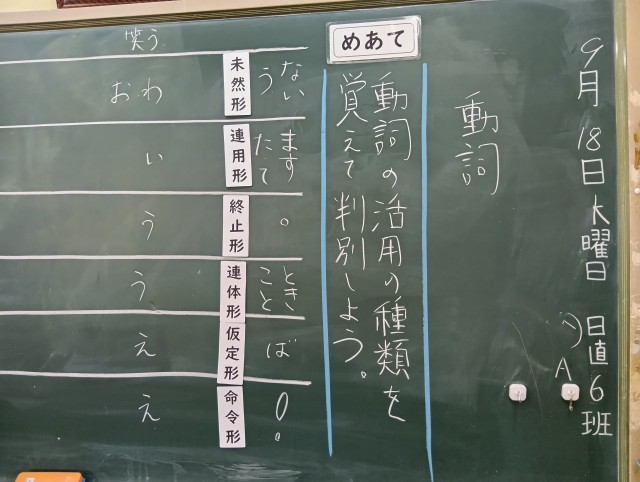 9月18日木曜日 日直6班
A
動詞
めあて
動詞の活用の種類を
覚えて判別しよう。
ない
う
ます
たて
。
とき
こと
ば
0。
未然形
連用形
終止形
連体形
仮定形
命令形
笑う
わ
お
い
う
う
え
え